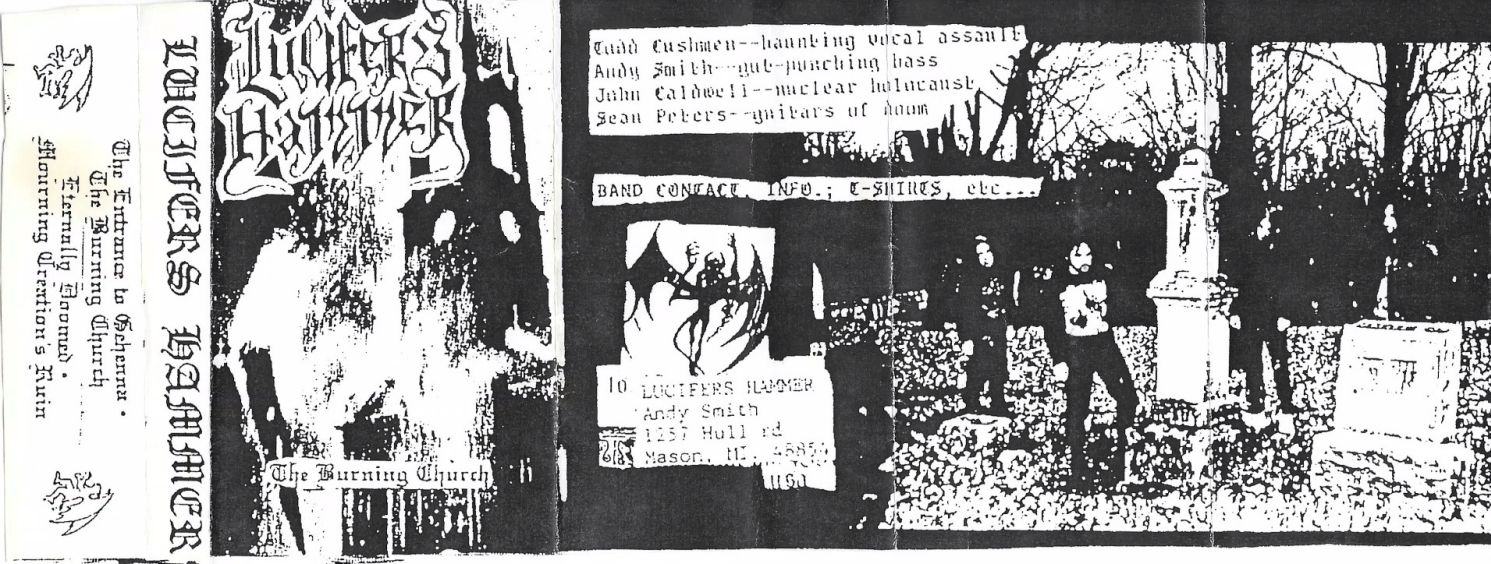 The Entrance to Gehenna •
The Burning Church
Eternally Doomed •
Mourning Creation's Ruin
LUCIFERS HAMMER
LUCIFERS
HAMMER
The Burning Church
Todd Cushmen--haunting vocal assault
Andy Smith--gut-punching bass
John Caldwell--nuclear holocaust
Sean Peters--guitars of doom
BAND CONTACT, INFO.; T-SHIRTS, etc...
To LUCIFERS HAMMER
Andy Smith
1257 Hull rd
Mason, MI. 48854
USA